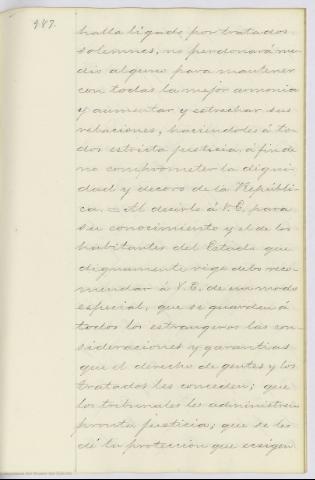 987.
halla ligado por tratados
solemnes, no perdonará me-
dio alguno para mantener
con todas la mejor armonia
y aumentar y estrechar sus
relaciones, haciendoles á to-
dos estricta justicia, á fin de
no comprometer la digni-
dad y decoro de la Repúbli-
ca. — Al decirlo á V. E. para
su conocimiento y el de los
habitantes del Estado que
dignamente rige debo reco-
mendar á V. E. de un modo
especial, que se guarden á
todos los estrangeros las con-
sideraciones y garantias
que el derecho de gentes y los
tratados les conceden; que
los tribunales les administren
pronta justicia; que se les
dé la proteccion que ecsigen